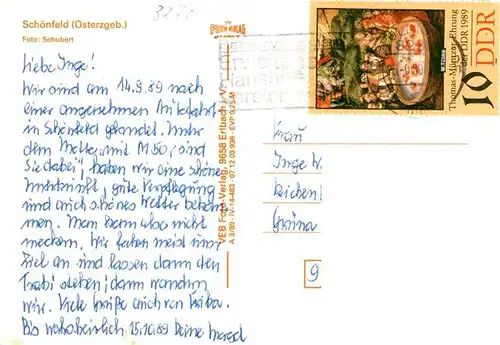 3271
Schönfeld (Osterzgeb.)
Foto: Schubert
Liebe Inge!
Wir sind am 14.9.89 nach
einer angenehmen Autofahrt
in Schönfeld gelandet. Unter
dem Motto, mit M 50, sind
Sie dabei", haben wir eine schöne
Unterkunft, gute Verpflegung
und auch schönes Wetter bekom
men. Man kann also nicht
meckern. Wir fahren meist uns
Ziel an und lassen dann den
Trabi stehen; dann wandern
wir. Viele Grüße auch von
Bis wahrscheinlich 15.10.89 Deine
VEB Foto-Verlag, 9658 Erlbach
A 3/89 · IV-14-483 · 07 12 03 936 · EVP 0,25 M
Thomas-Müntzer-Ehrung
der DDR 1989
W. Tübke
10 DDR
Frau
Inge W.
Grüna
9